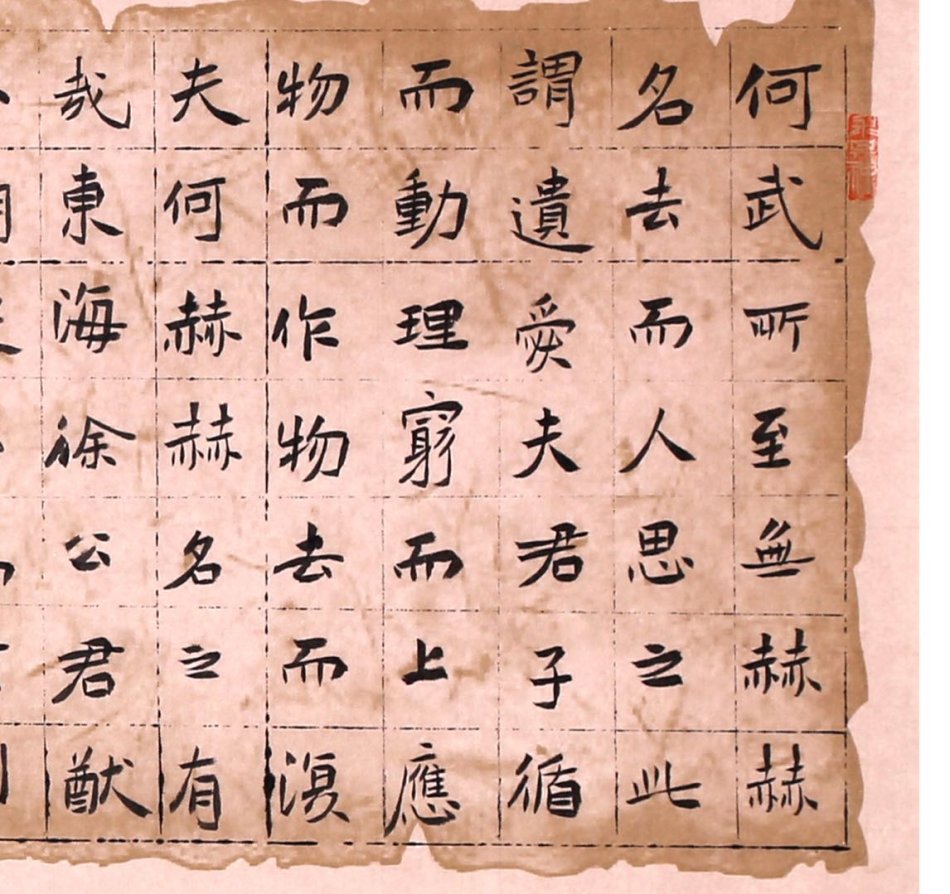 何武所至無赫赫
名去而人思之此
謂遺愛夫君子循
而動理窮而上應
物而作物去而復
夫何赫赫名之有
哉東海徐公君猷